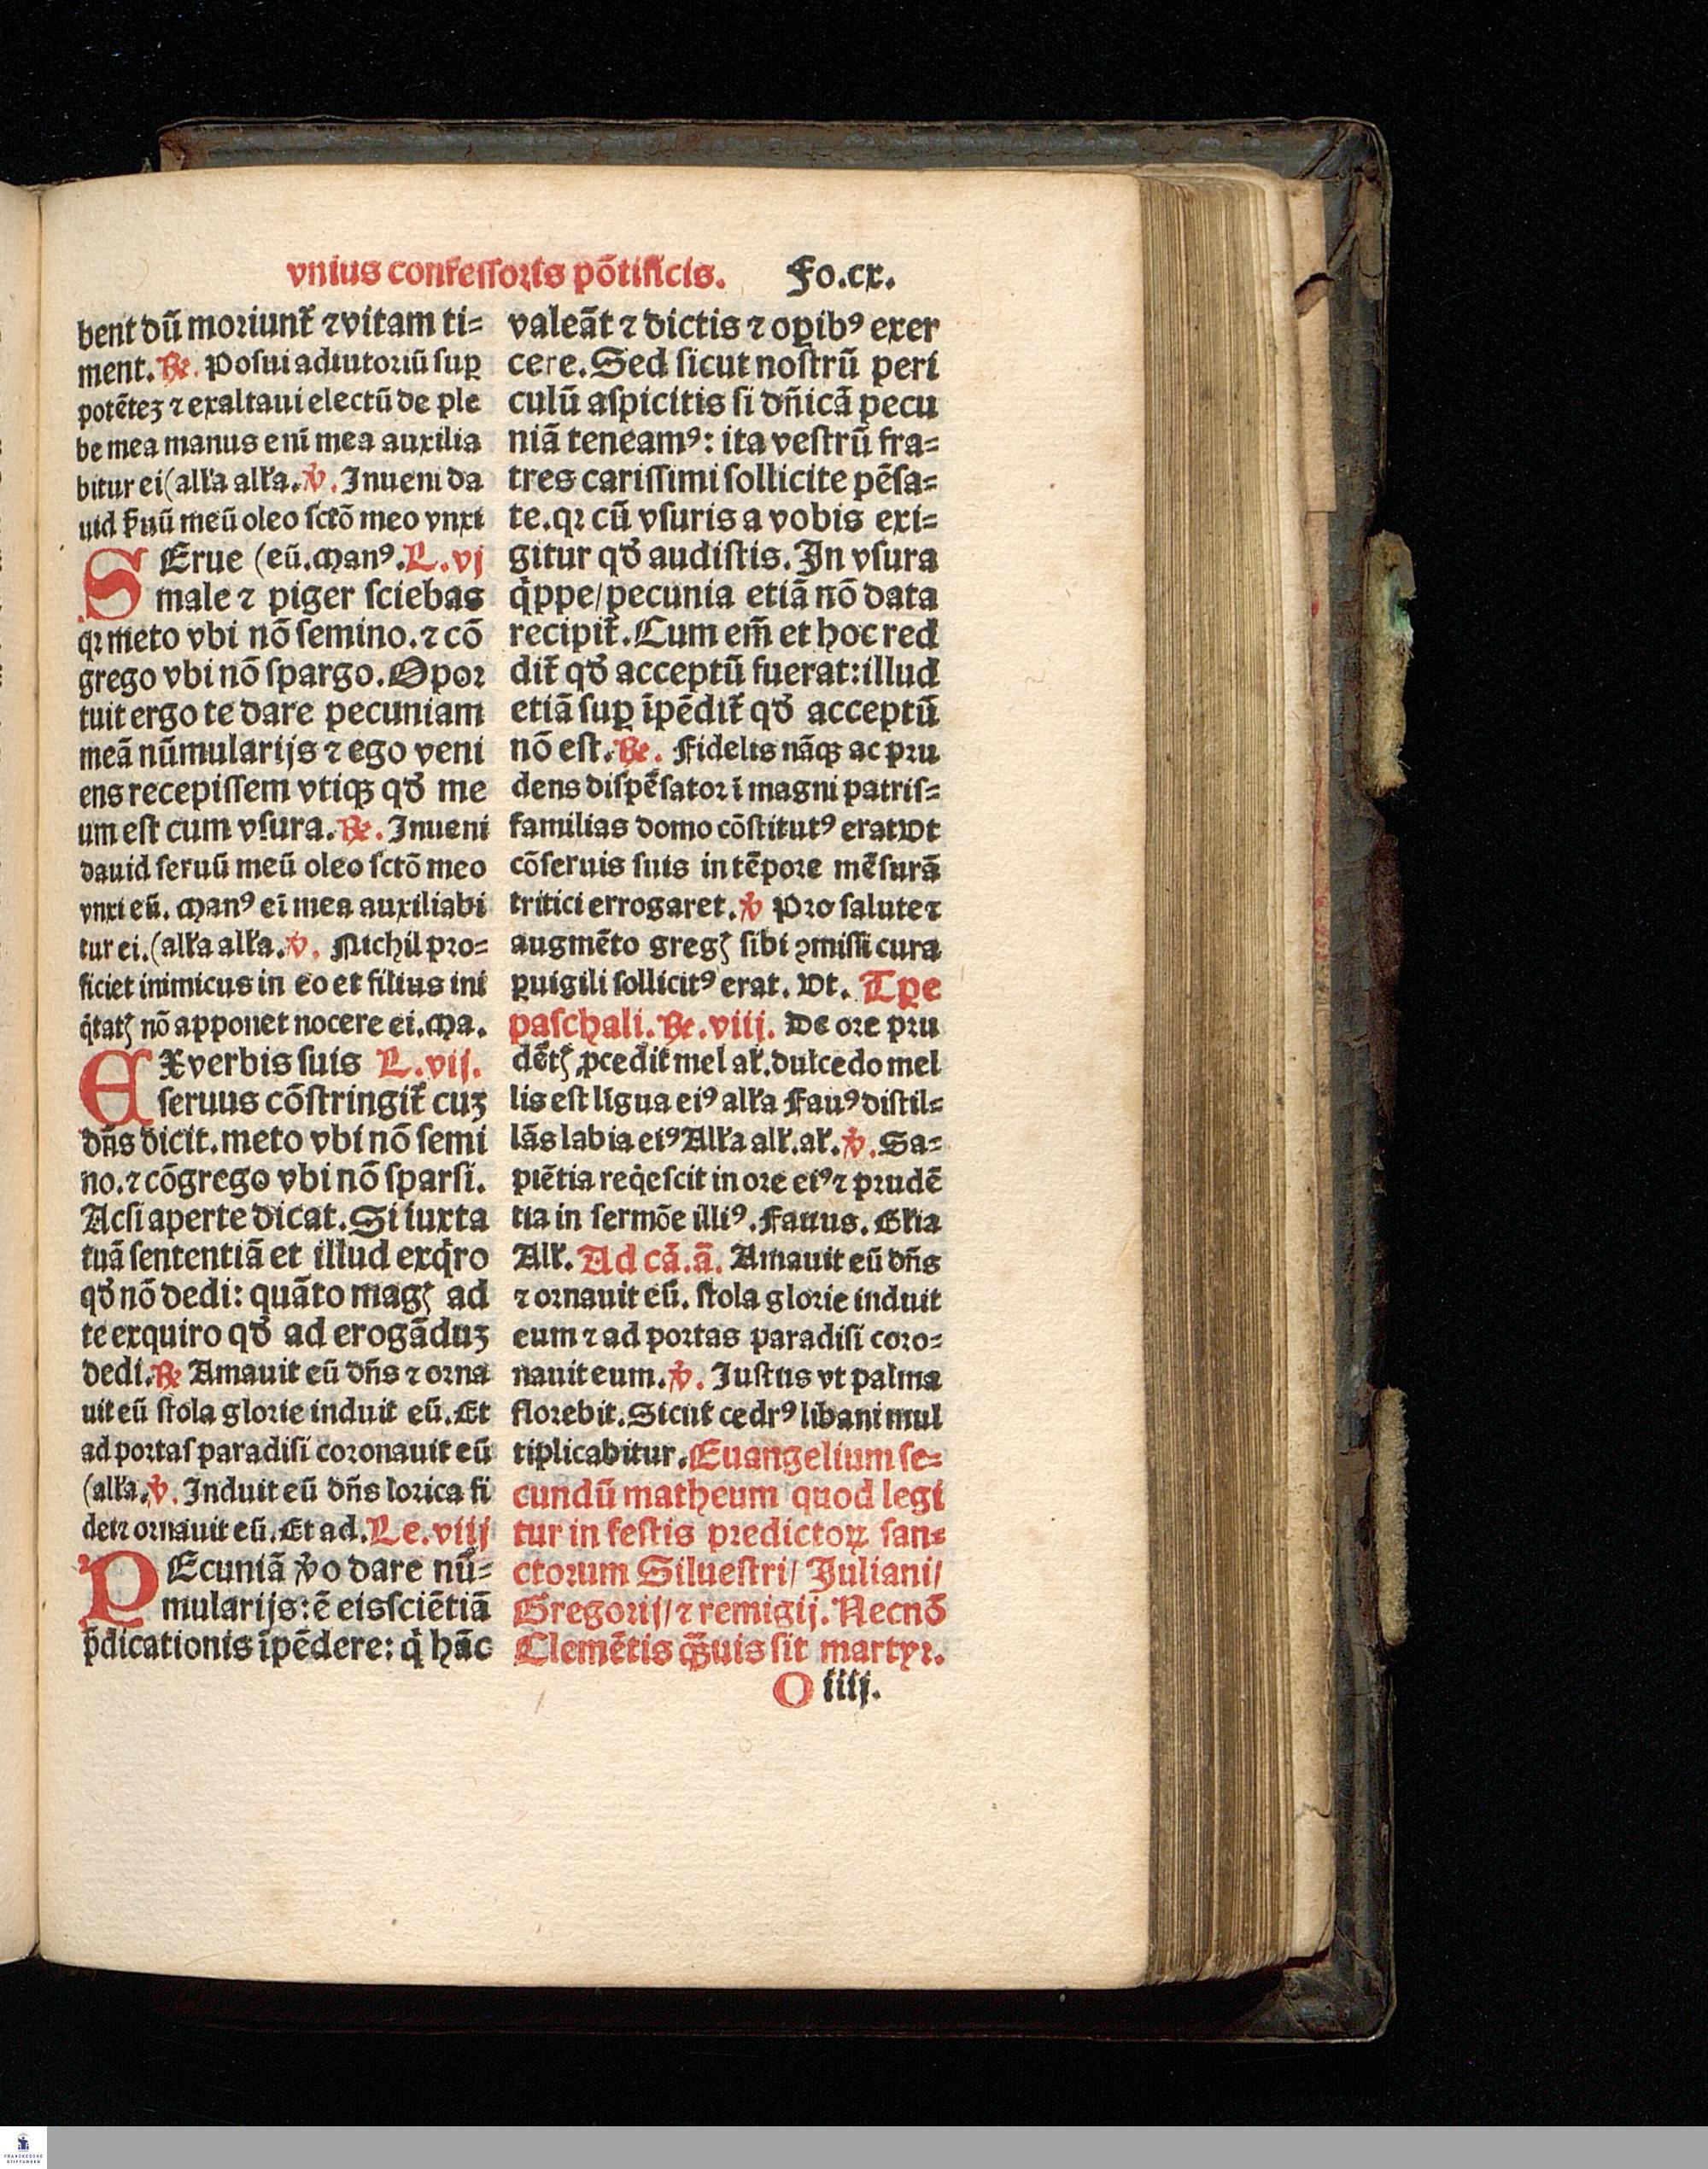 vnius confessoris põtificis. Fo.cx.
bent dũ moriunt̃ ⁊ vitam ti=
ment. ℟. Posui adiutoriũ suꝑ
potẽteʒ ⁊ exaltaui electũ de ple
be mea manus enĩ mea auxilia
bitur ei (all'a all'a. ℣. Inueni da
uid ſ̃uũ meũ oleo sctõ meo vnxi
SErue (eũ. Manꝰ. L. vj
male ⁊ piger sciebas
qꝛ meto vbi nõ semino. ⁊ cõ
grego vbi nõ spargo. Opor
tuit ergo te dare pecuniam
meã nũmularijs ⁊ ego veni
ens recepissem vtiqꝫ qđ me
um est cum vsura. ℟. Inueni
dauid seruũ meũ oleo sctõ meo
vnxi eũ. Manꝰ eĩ mea auxiliabi
tur ei. (all'a all'a. ℣. Nichil pro=
ficiet inimicus in eo et filius ini
q̇tatꝭ nõ apponet nocere ei. Ma.
EX verbis suis L. vij.
seruus cõstringit̃ cuʒ
dñs dicit. meto vbi nõ semi
no. ⁊ cõgrego vbi nõ sparsi.
Acsi aperte dicat. Si iuxta
tuã sententiã et illud exq̇ro
qđ nõ dedi: quãto magꝭ ad
te exquiro qđ ad erogãduʒ
dedi. ℟ Amauit eũ dñs ⁊ orna
uit eũ stola glorie induit eũ. Et
ad portas paradisi coronauit eũ
(all'a. ℣. Induit eũ dñs lorica fi
dei ⁊ ornauit eũ. Et ad. Le. viij
PEcuniã ṽo dare nũ=
mularijs: ẽ eis sciẽtiã
p̃dicationis ĩpẽdere: q̇ hãc
valeãt ⁊ dictis ⁊ oꝑibꝰ exer
cere. Sed sicut nostrũ peri
culũ aspicitis si dñicã pecu
niã teneamꝰ: ita vestrũ fra=
tres carissimi sollicite pẽsa=
te. qꝛ cũ vsuris a vobis exi=
gitur qđ audistis. In vsura
q̇ppe/ pecunia etiã nõ data
recipit̃. Cum em̃ et hoc red
dit̃ qđ acceptũ fuerat: illud
etiã suꝑ ĩpẽdit̃ qđ acceptũ
nõ est. ℟. Fidelis nãqꝫ ac pru
dens dispẽsator ĩ magni patris=
familias domo cõstitutꝰ erat Vt
cõseruis suis in tẽpore mẽsurã
tritici errogaret. ℣ Pro salute ⁊
augmẽto gregꝭ sibi ꝯmissi cura
ꝑuigili sollicitꝰ erat. Vt. Tꝑe
paschali. ℟. viij. De ore pru
dẽtꝭ ꝓcedit̃ mel al'. dulcedo mel
lis est lĩgua eiꝰ all'a Fauꝰ distil=
lãs labia eiꝰ All'a all'. al'. ℣. Sa=
piẽtia req̇escit in ore eiꝰ ⁊ prudẽ
tia in sermõe illiꝰ. Fauus. Gl'ia
All'. Ad cã. ã. Amauit eũ dñs
⁊ ornauit eũ. stola glorie induit
eum ⁊ ad portas paradisi coro=
nauit eum. ℣. Iustus vt palma
florebit. Sicut cedrꝰ libani mul
tiplicabitur. Euangelium se=
cundũ matheum quod legi
tur in festis predictoꝝ san=
ctorum Siluestri/ Juliani/
Gregorij/ ⁊ remigij. Necnõ
Clemẽtis qꝫ̃uis sit martyr.
O iiij.
FRANCKESCHE
STIFTUNGEN